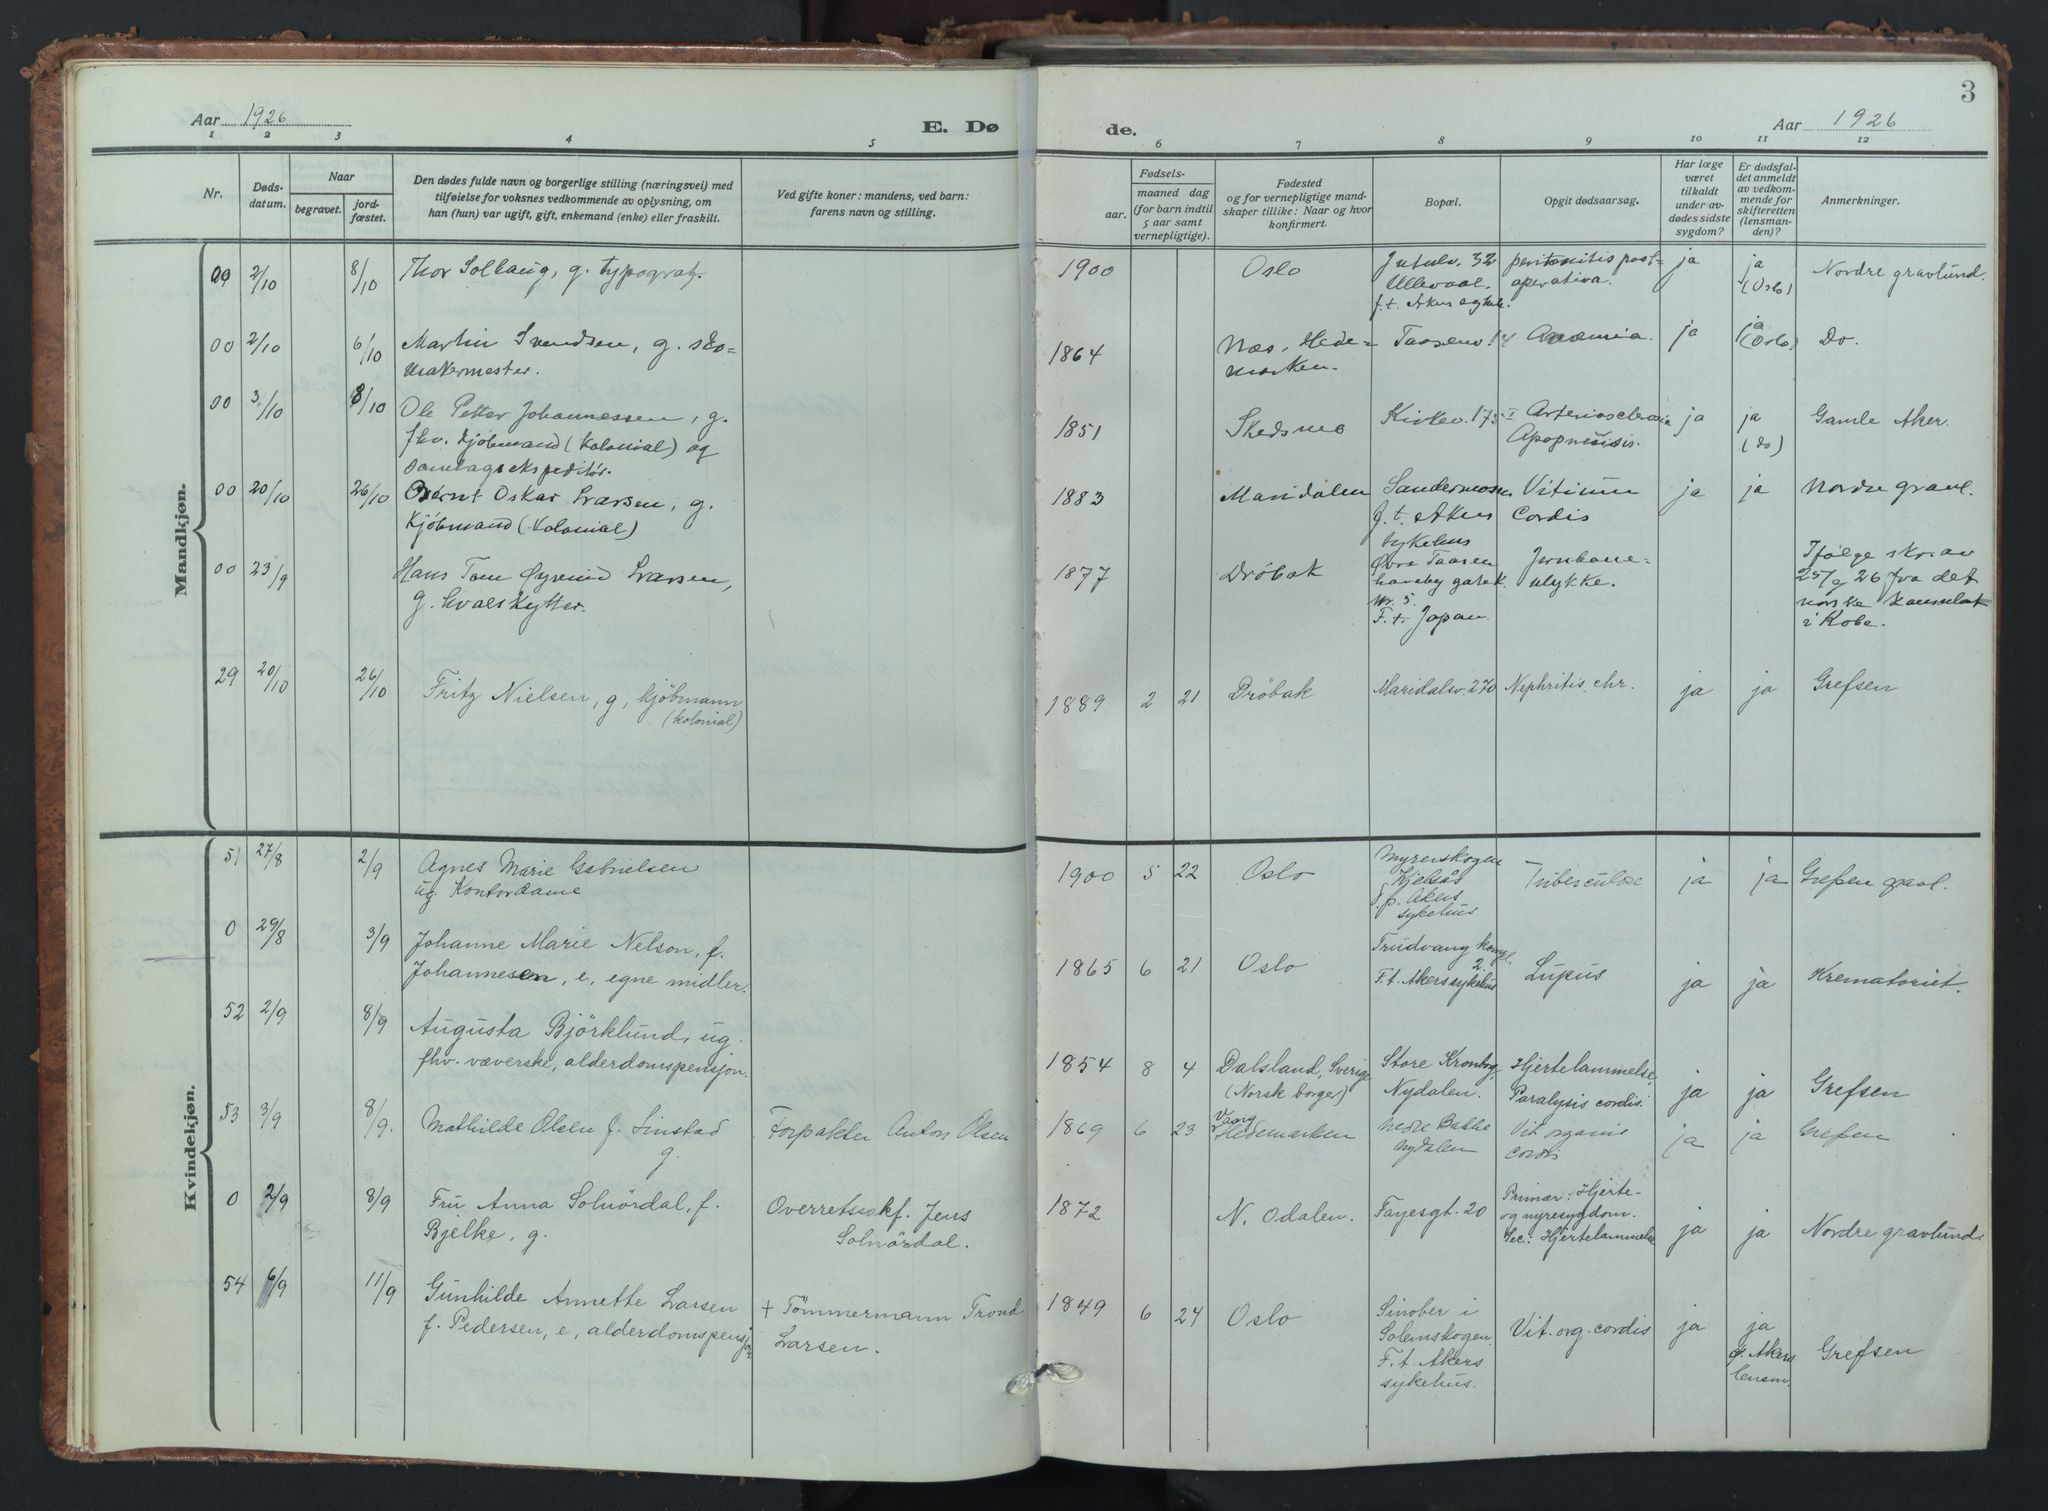 3
Aar 1926
E. Dø
de.
Aar 1926
1 2 3 4 5 6 7 8 9 10 11 12
Nr.
Døds-
datum.
Naar
begravet.
jord-
fæstet.
Den dødes fulde navn og borgerlige stilling (næringsvei) med
tilføielse for voksnes vedkommende av oplysning, om
han (hun) var ugift, gift, enkemand (enke) eller fraskilt.
Ved gifte koner: mandens, ved barn:
farens navn og stilling.
Fødsels-
aar.
maaned dag
(for barn indtil
5 aar samt
vernepligtige).
Fødested
og for vernepligtige mand-
skaper tillike: Naar og hvor
konfirmert.
Bopæl.
Opgit dødsaarsag.
Har læge
været
tilkaldt
under av-
dødes sidste
sygdom?
Er dødsfal-
det anmeldt
av vedkom-
mende for
skifteretten
(lensman-
den)?
Anmerkninger.
Mandkjøn.
2/10 8/10 Thor Solhaug, g. typograf.
1900 Oslo
Jutulv. 32
Ullevaal.
f. t. Akers sykeh.
peritonitis post-
operativa.
ja
ja
(Oslo)
Nordre gravlund.
00 2/10 6/10 Martin Svendsen, g. sko-
makermester.
1864
Næs, Hede-
marken.
Taasenv. 14
Anæmia.
ja
ja
(Oslo)
Do.
00 3/10 8/10 Ole Petter Johannessen, g.
fhv. Kjøbmand (Kolonial) og
1851 Skedsmo
Kirkev. 175 I
Arteriosclerosis
ja
ja
(do)
Gamle Aker.
00 20/10 26/10 Bernt Oskar Larsen, g.
Kjøbmand (Kolonial)
1883 Maridalen
Sandermosen
f. t. Akers
sykehus
Vitium
Cordis
ja
ja
Nordre gravl.
00 23/9 Hans Tom Øyvind Larsen,
g. hvalskytter.
1877 Drøbak
Øvre Taasen
haveby
Nr. 5.
F. t. Japan.
Jernbane-
ulykke.
Ifølge skr. av
25/9 26 fra det
norske konsulat
i Kobe.
29 20/10 26/10 Fritz Nielsen, g, kjøbmann
(kolonial)
1889 2 21 Drøbak
Maridalsv. 270
Nephritis chr.
ja
ja
Grefsen
Kvindekjøn.
51 27/8 2/9 Agnes Marie Gabrielsen
ug. Kontordame
1900 5 22 Oslo
Myrerskogen
Kjelsås
Akers
sykehus
Tuberculose
ja
ja
Grefsen gravl.
0 29/8 3/9 Johanne Marie Nelson, f.
Johannesen, e, egne midler.
1865 6 21 Oslo
Trudvang
2.
F. t. Akers sykehus
Lupus
ja
ja
Krematoriet.
52 2/9 8/9 Augusta Björklund, ug.
fhv. væverske, alderdomspensjon.
1854 8 4
Dalsland, Sverige
(Norsk borger)
Store Kronborg,
Nydalen.
Hjertelammelse,
Paralysis cordis.
ja
ja
Grefsen
53 3/9 8/9. Mathilde Olsen f. Linstad
g.
Forpakter Anton Olsen
1869 6 23
Vaang
Hedemarken
Nedre Bakke
Nydalen
Vit. organic
cordis
ja
ja
Grefsen
0 2/9 8/9 Fru Anna Solnördal, f.
Bjelke, g.
Overretssakf. Jens
Solnördal.
1872 N. Odalen.
Fayesgt. 20
Primær: Hjerte-
og nyresygdom.
Sec: Hjertelammelse
ja
ja
Nordre gravlund.
54 6/9 11/9 Gunhilde Annette Larsen
f. Pedersen, e, alderdomspensjon
+ Tömmermann Trond
Larsen.
1849 6 24 Oslo
Sinober i
Solemskogen.
F. t. Akers
sykehus.
Vit. org. cordis
ja
ja
Akers
lensm.
Grefsen